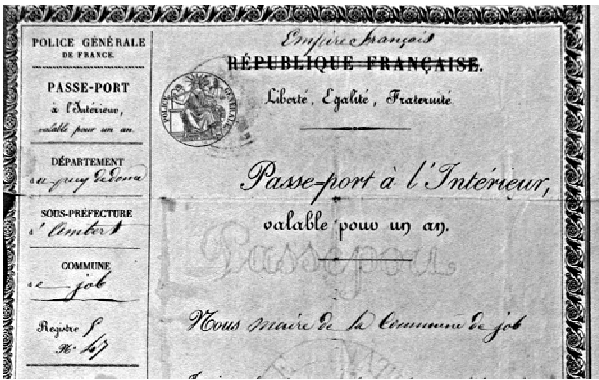 POLICE GÉNÉRALE
DE FRANCE.
PASSE-PORT
à l'Intérieur,
valable pour un an.
DÉPARTEMENT
du puy de dome
SOUS-PRÉFECTURE
d'Ambert
COMMUNE
de job
Registre 5
N° 47
Empire français
RÉPUBLIQUE FRANÇAISE.
Liberté, Egalité, Fraternité
POLICE GÉNÉRALE
Passe-port à l'Intérieur,
valable pour un an.
Passeport
Nous maire de la Commune de job